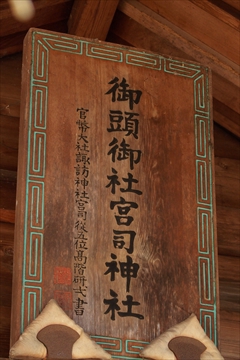 御頭御社宮司神社
官幣大社諏訪神社宮司従五位高階研弌書